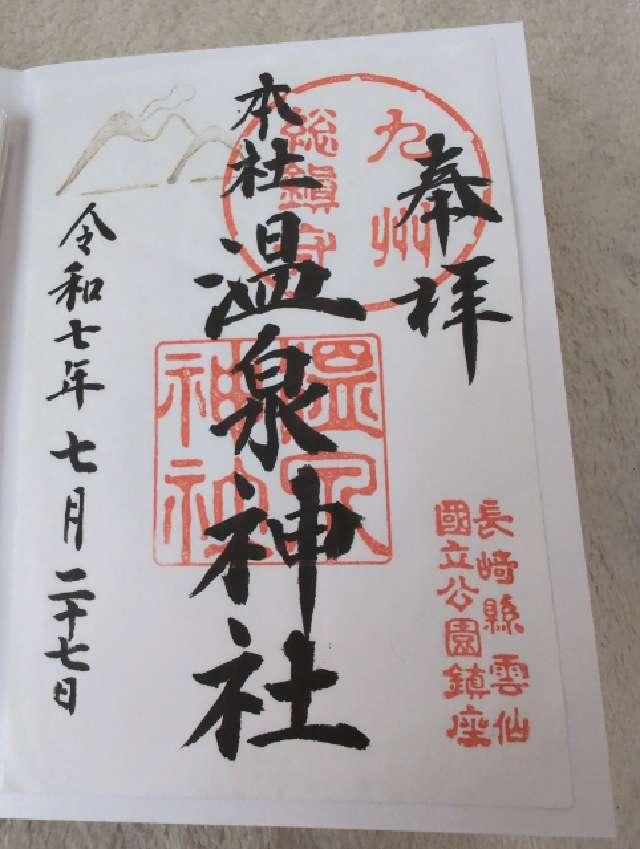 奉拝
九州
総鎮守
本社
温泉神社
温泉
神社
長崎縣雲仙
國立公園鎮座
令和七年七月二十七日